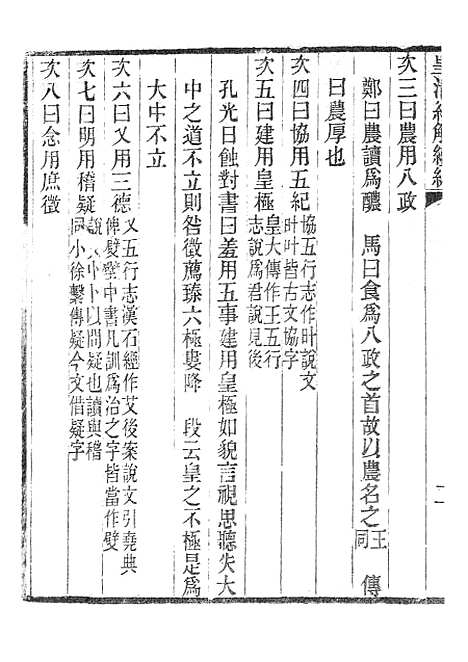 皇清經解續編
二
次三曰農用八政
鄭曰農讀爲醲 馬曰食爲八政之首故以農名之王同 傳
曰農厚也
次四曰協用五紀協五行志作叶說文叶叶皆古文協字
次五曰建用皇極皇大傳作王五行志說爲君說見後
孔光日蝕對書曰羞用五事建用皇極如貌言視思聽失大
中之道不立則咎徵薦臻六極婁降 段云皇之不極是爲
大中不立
次六曰乂用三德乂五行志漢石經作艾後案說文引堯典俾嬖壁中書凡訓爲治之字皆當作嬖
次七曰明用稽疑說文卟卜以問疑也讀與稽同小徐繫傳疑今文借疑字
次八曰念用庶徵